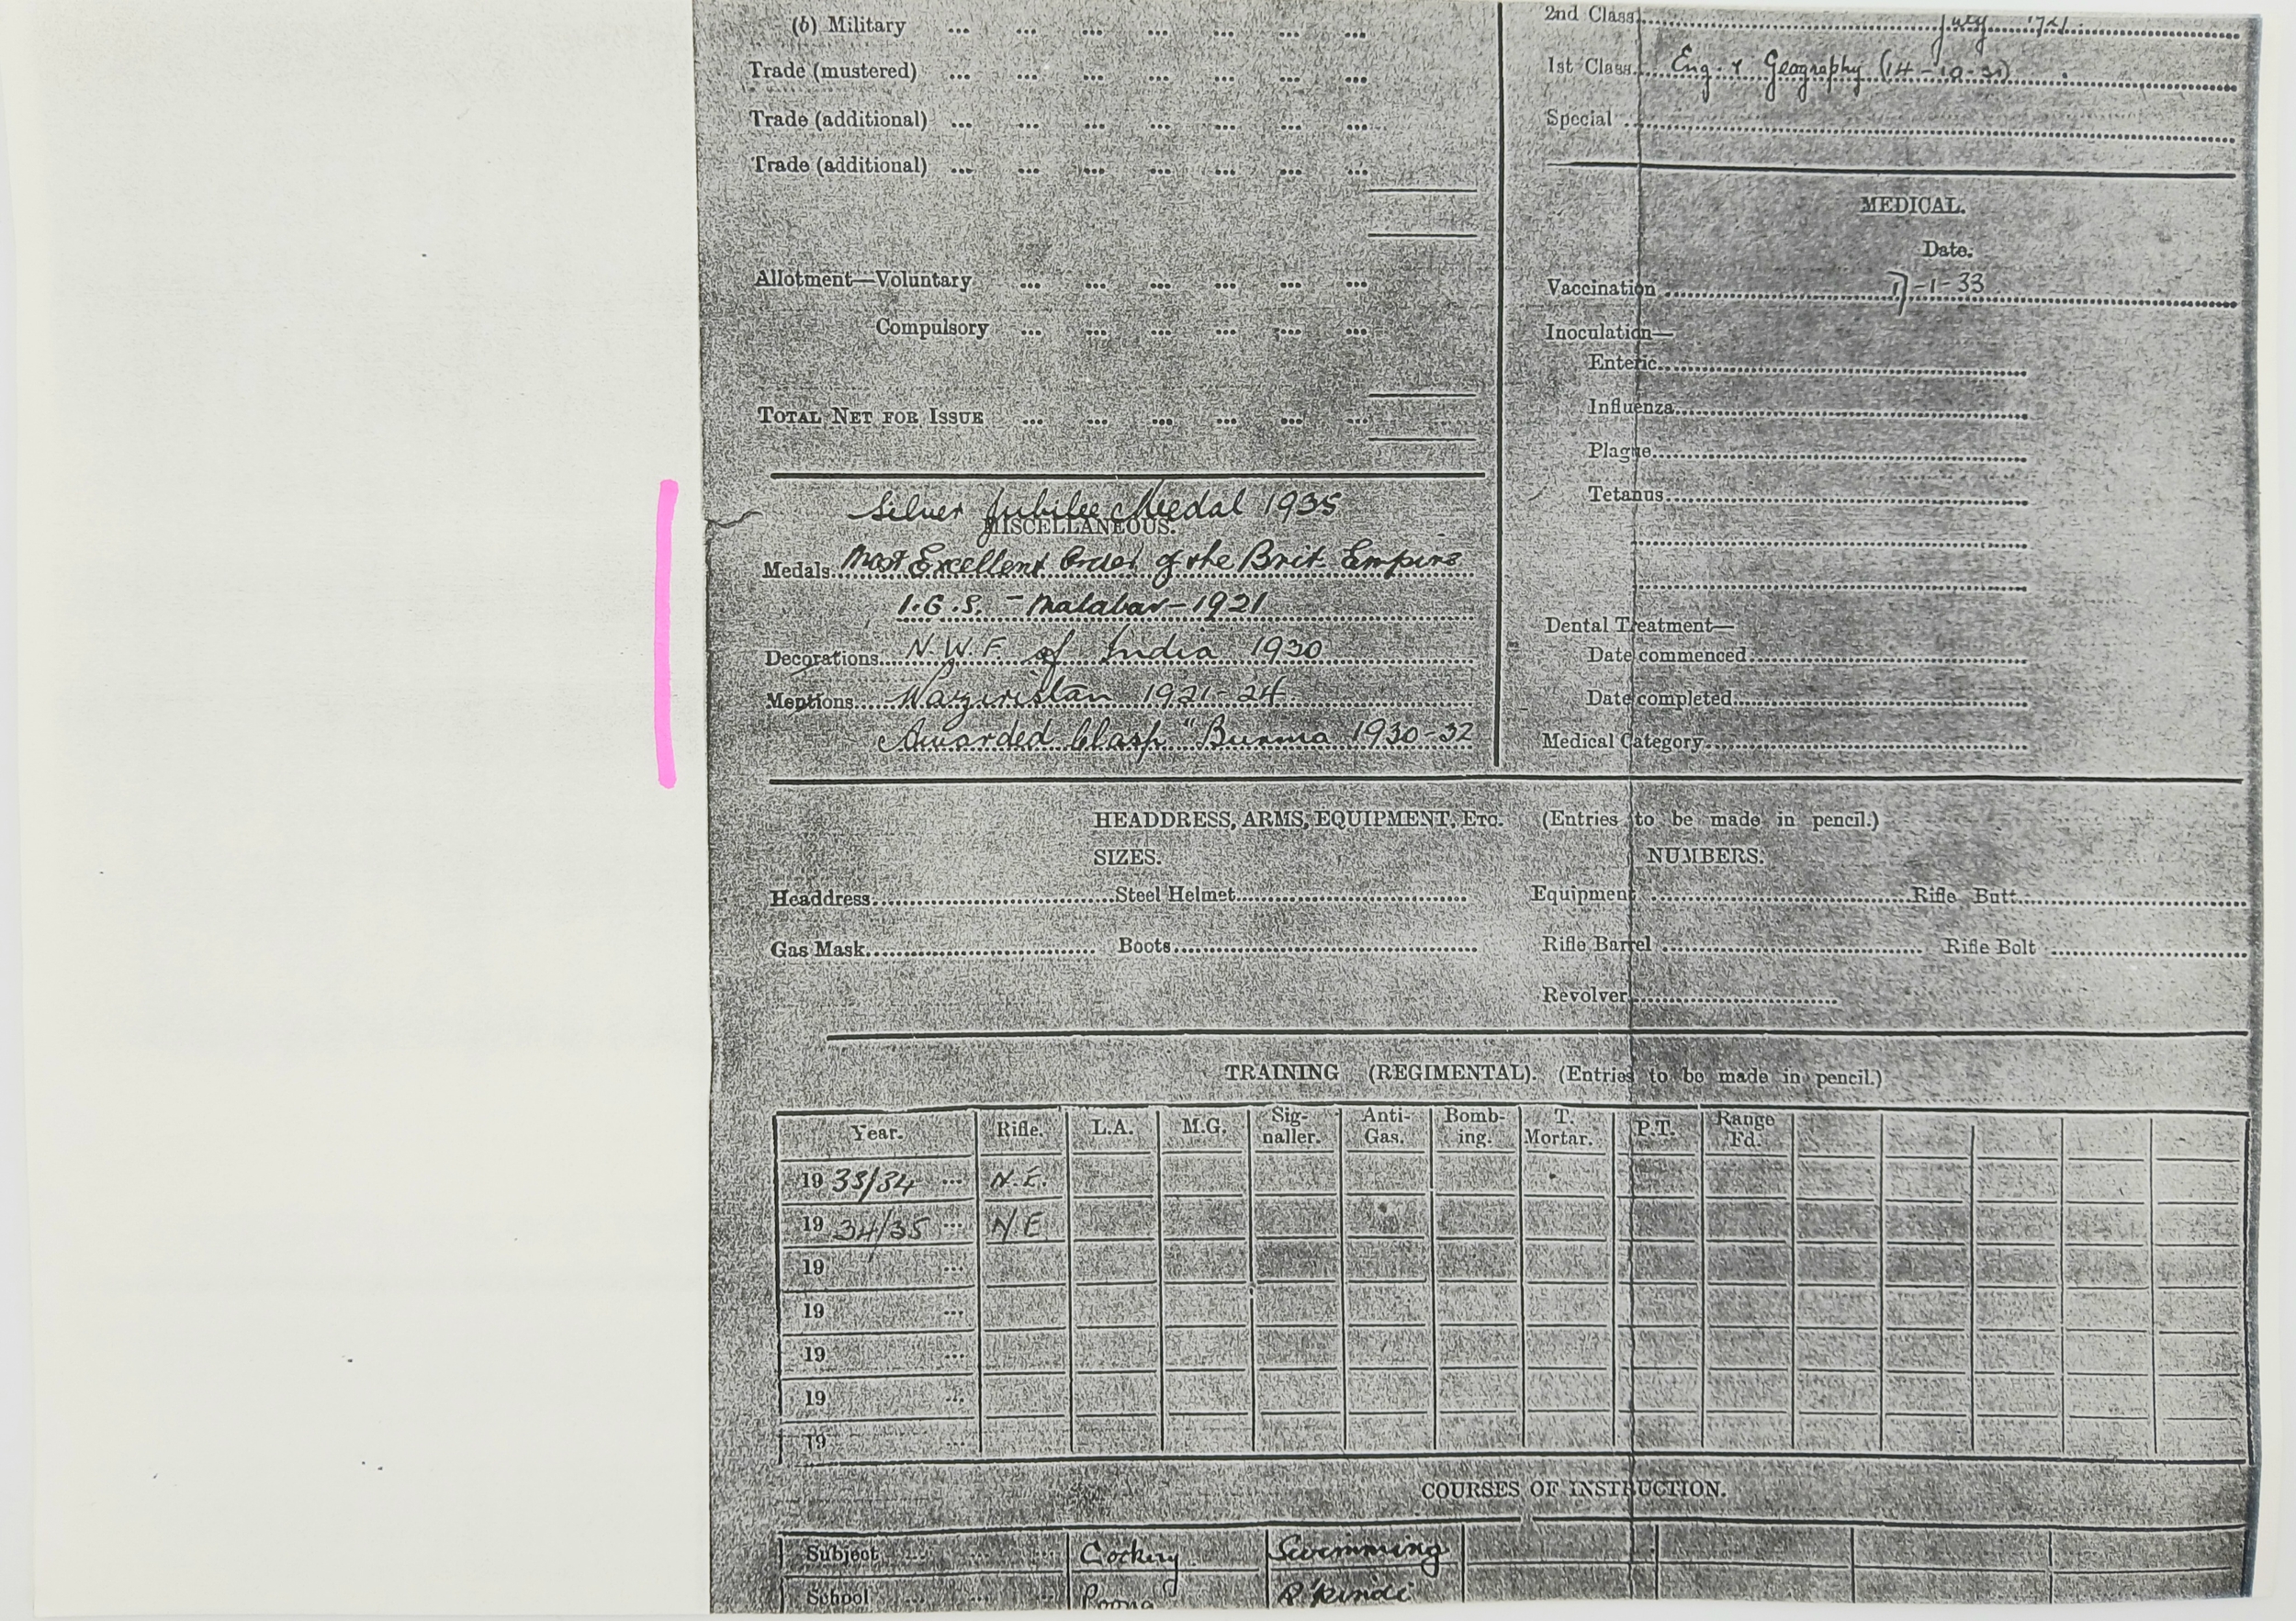 (b) Military ... ... ... ... ... ... ...
Trade (mustered) ... ... ... ... ... ... ...
Trade (additional) ... ... ... ... ... ... ...
Trade (additional) ... ... ... ... ... ... ...
Allotment—Voluntary ... ... ... ... ... ...
Compulsory ... ... ... ... ... ...
TOTAL NET FOR ISSUE ... ... ... ... ... ...
Silver Jubilee Medal 1935
MISCELLANEOUS.
Medals Most Excellent Order of the Brit Empire
I.G.S. - Malabar - 1921
Decorations N.W.F. of India 1930
Mentions Waziristan 1921-24
Awarded Clasp "Burma 1930-32
2nd Class July
1st Class Eng. & Geography
Special
MEDICAL.
Date.
Vaccination -1-33
Inoculation—
Enteric
Influenza
Plague
Tetanus
Dental Treatment—
Date commenced
Date completed
Medical Category
HEADDRESS, ARMS, EQUIPMENT, ETC. (Entries to be made in pencil.)
SIZES. NUMBERS.
Headdress Steel Helmet Equipment Rifle Butt
Gas Mask Boots Rifle Barrel Rifle Bolt
Revolver
TRAINING (REGIMENTAL). (Entries to be made in pencil.)
Year. Rifle. L.A. M.G. Sig-naller. Anti-Gas. Bomb-ing. T. Mortar. P.T. Range Fd.
19 33/34 ... N.E.
19 34/35 ... N.E
19 ...
19 ...
19 ...
19 ...
19 ...
COURSES OF INSTRUCTION.
Subject Cookery Swimming
School Poona R'pindi